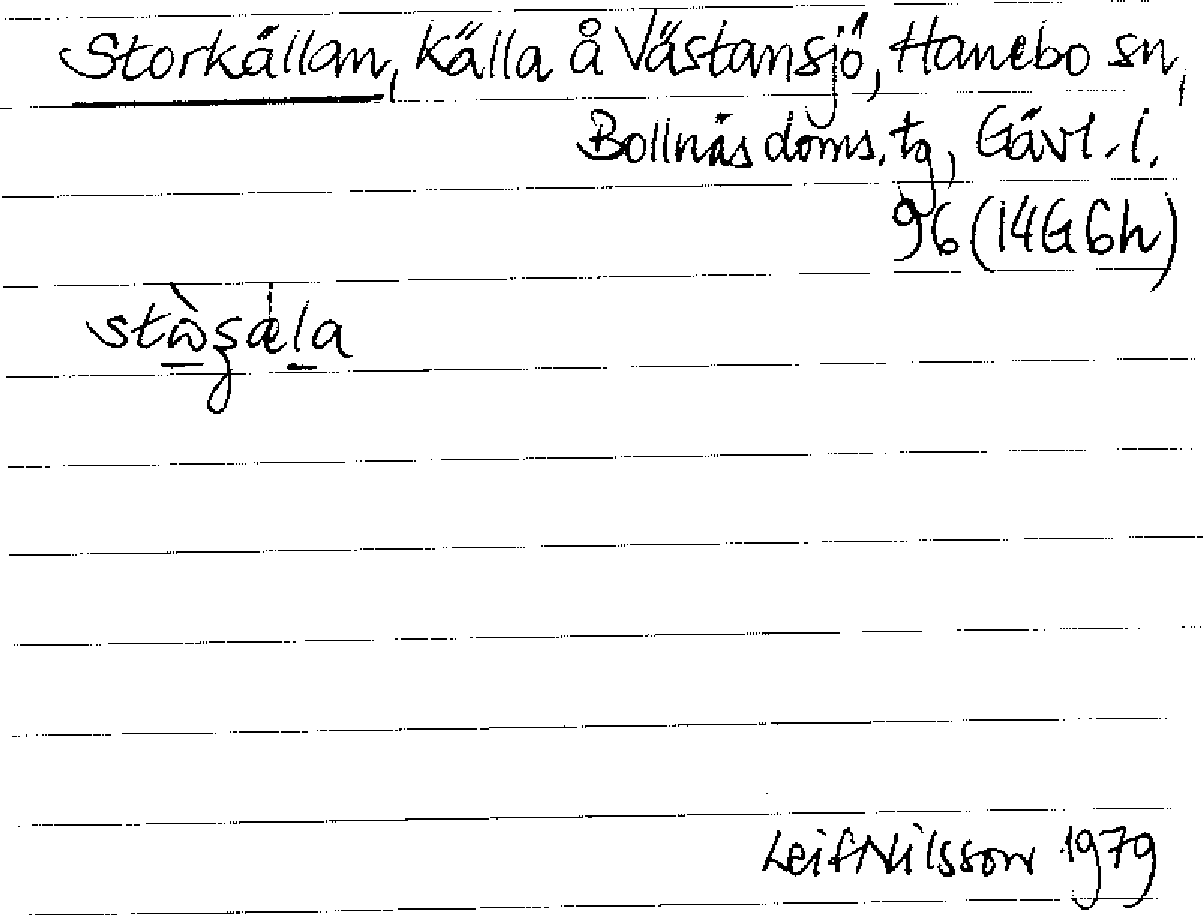 Storkällan, Källa å Västansjö, Hanebo sn,
Bollnäs doms. tg, Gävl. l.
96 (14G6h)
Leif Nilsson 1979